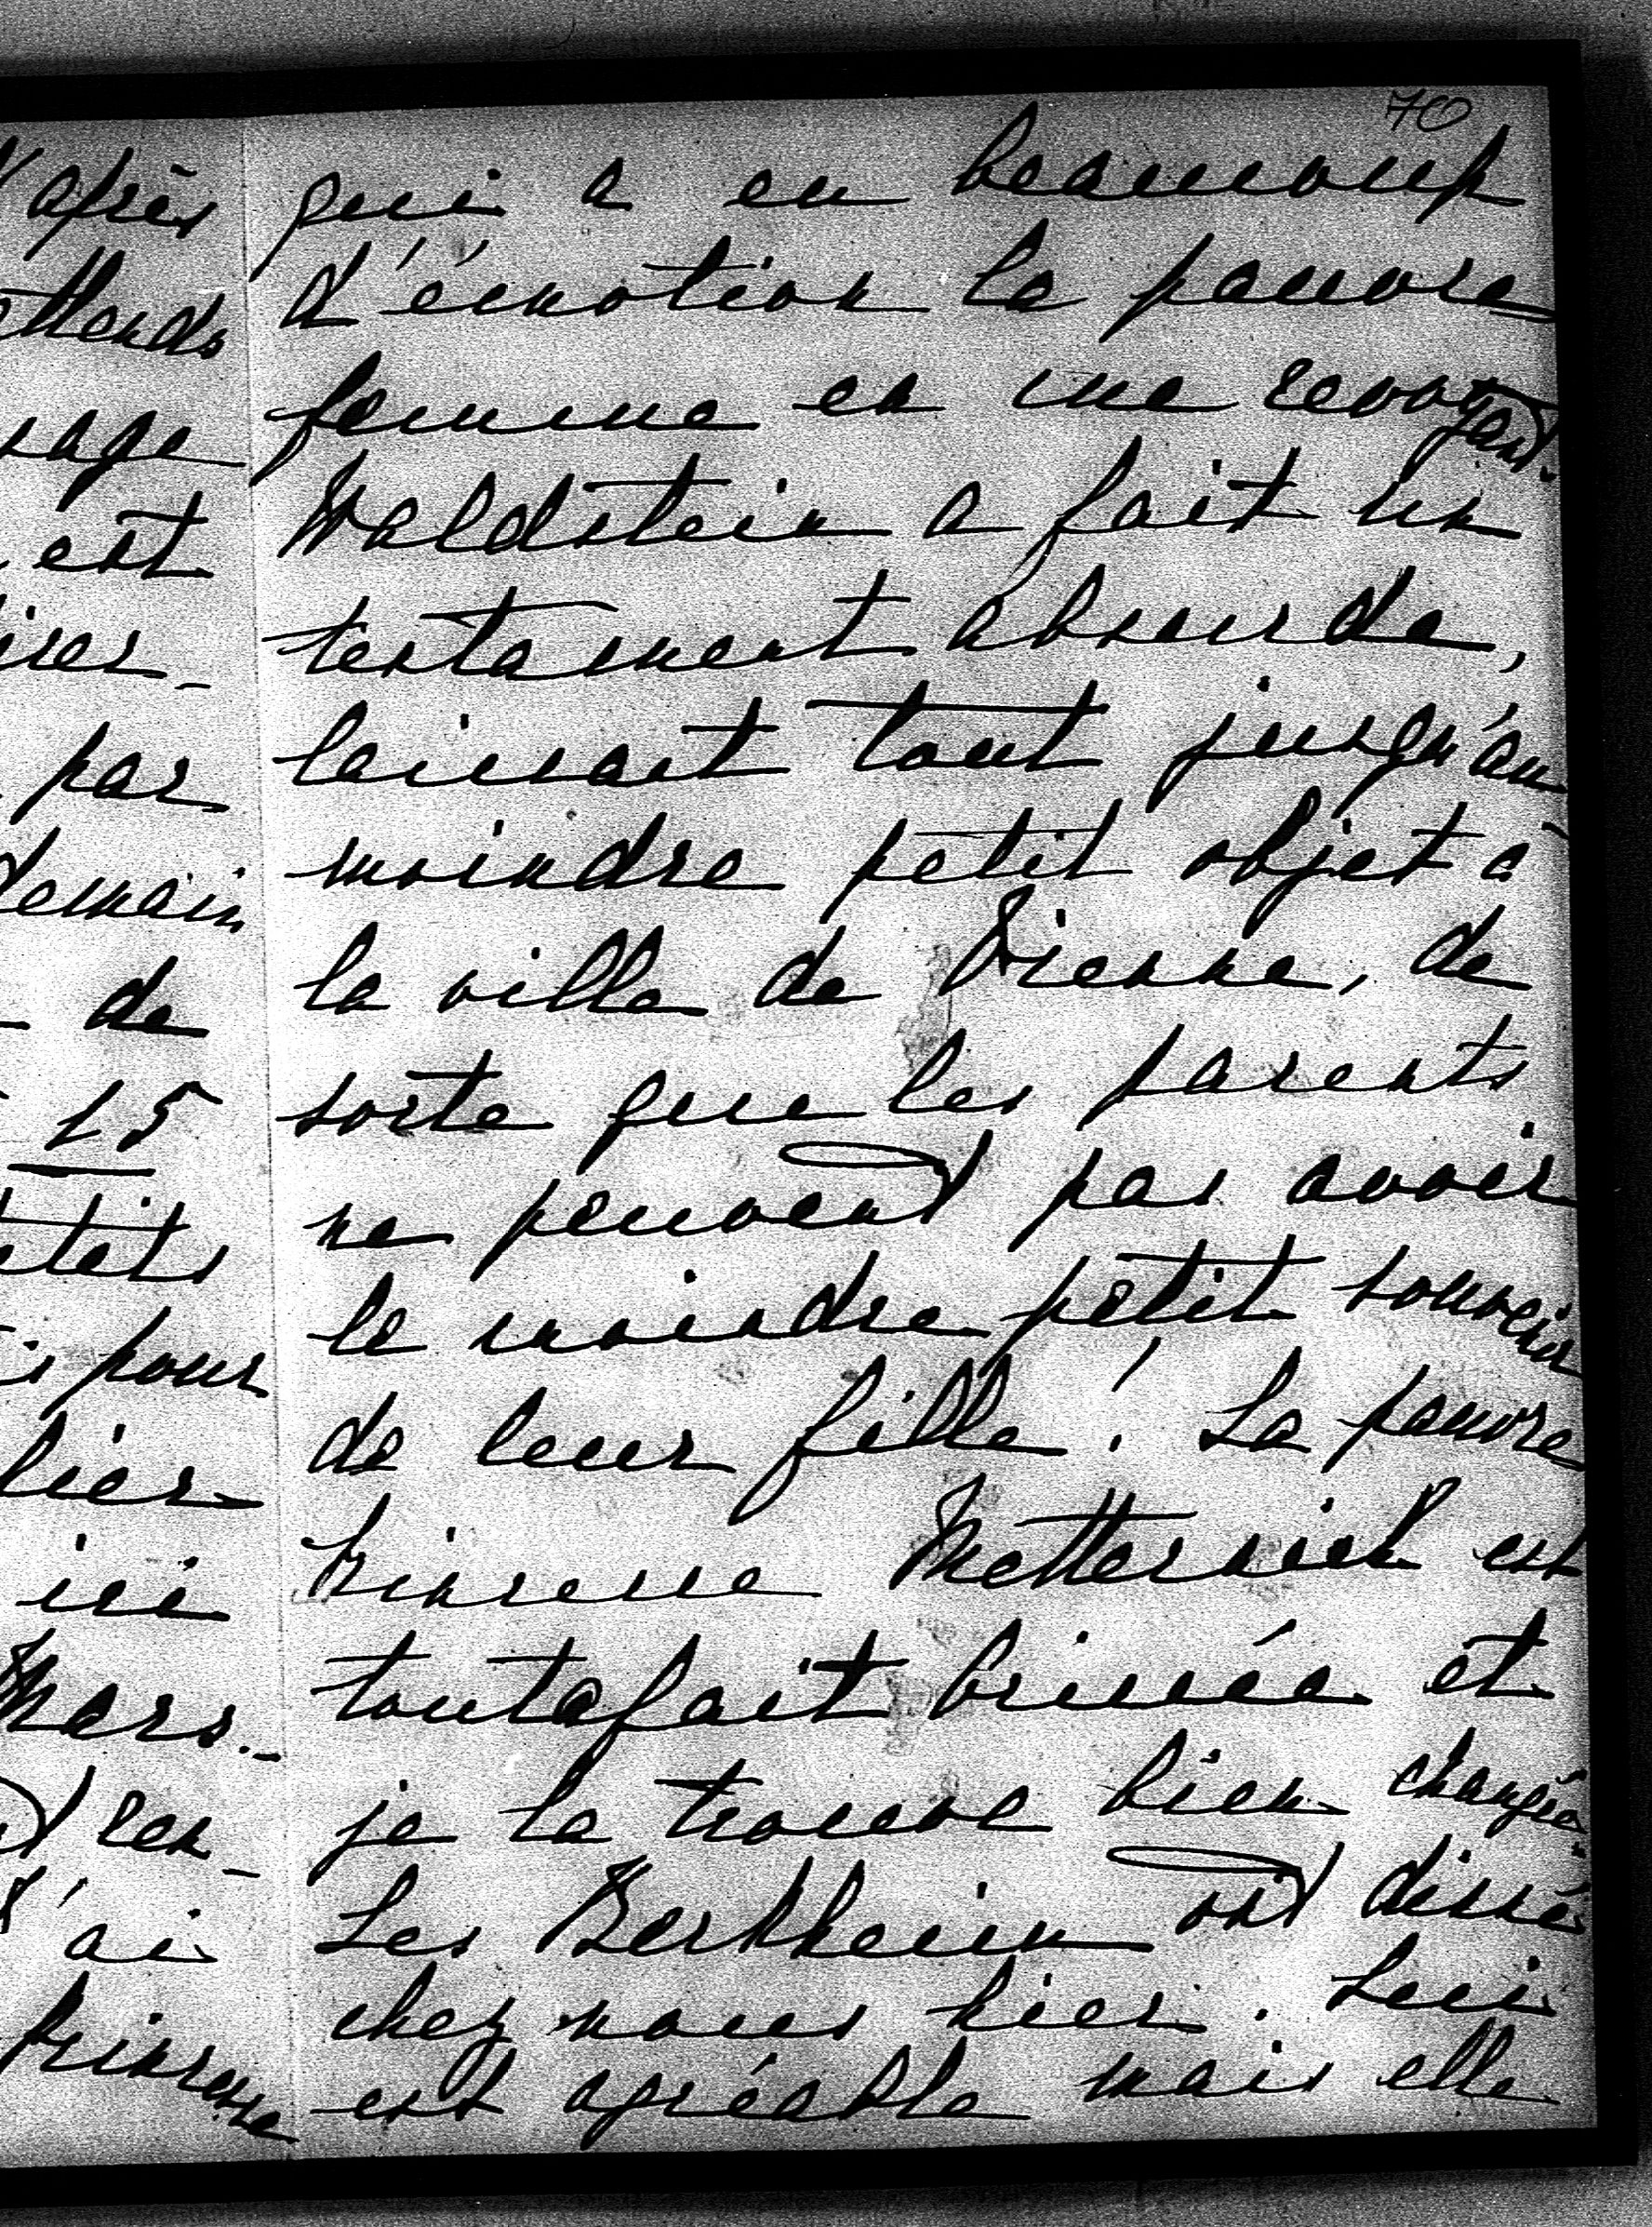 70
qui a eu beaucoup
d'émotion la pauvre
femme en me revoyant.
Waldstein a fait un
testament absurde,
laissant tout jusqu'au
moindre petit objet à
la ville de Vienne, de
sorte que les parents
ne peuvent pas avoir
le moindre petit souvenir
de leur fille! La pauvre
Princesse Metternich est
toutafait brisée et
je la trouve bien changée.
Les Berkheim ont dîné
chez nous hier. Lui
est agréable mais elle
après
sage
est
par
demain
de
15
pour
ici
Mars.
Princesse